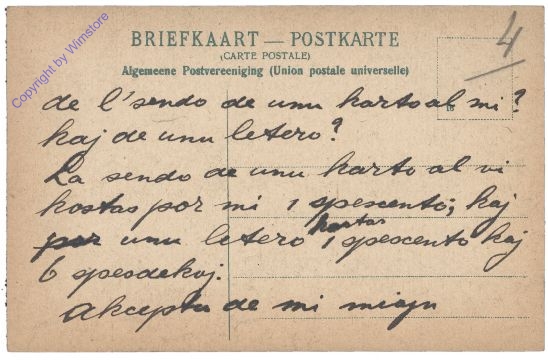 4
BRIEFKAART — POSTKARTE
(CARTE POSTALE)
Algemeene Postvereeniging (Union postale universelle)
Copyright by Wimstore
de l'sendo de unu karto al mi?
kaj de unu letero?
La sendo de unu karto al vi
kostas por mi 1 spescento; kaj
por unu letero kostas 1 spescento kaj
6 spesdekoj.
Akceptu de mi miajn